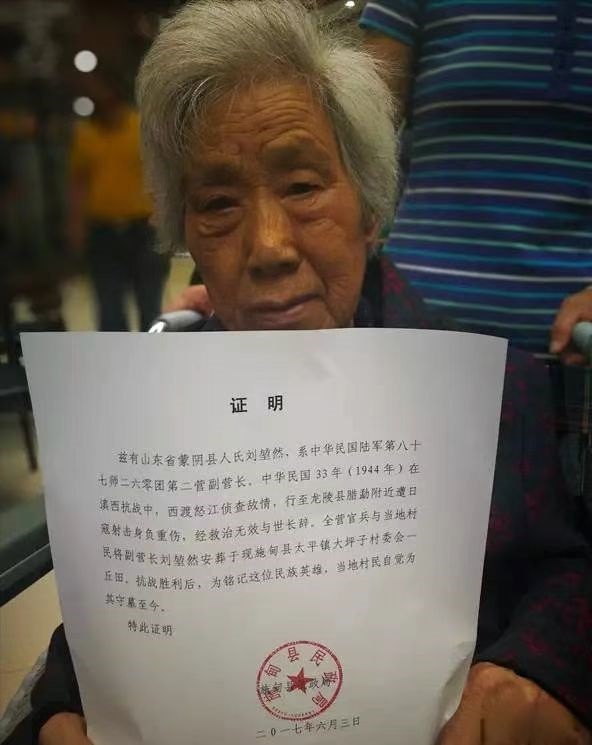 证 明
兹有山东省蒙阴县人氏刘堃然，系中华民国陆军第八十
七师二六零团第二营副营长，中华民国 33 年（1944 年）在
滇西抗战中，西渡怒江侦查敌情，行至龙陵县腊勐附近遭日
寇射击身负重伤，经救治无效与世长辞。全营官兵与当地村
民将副营长刘堃然安葬于现施甸县太平镇大坪子村委会一
丘田。抗战胜利后，为铭记这位民族英雄，当地村民自觉为
其守墓至今。
特此证明
施甸县民政局
施甸县民政局
二〇一七年六月三日